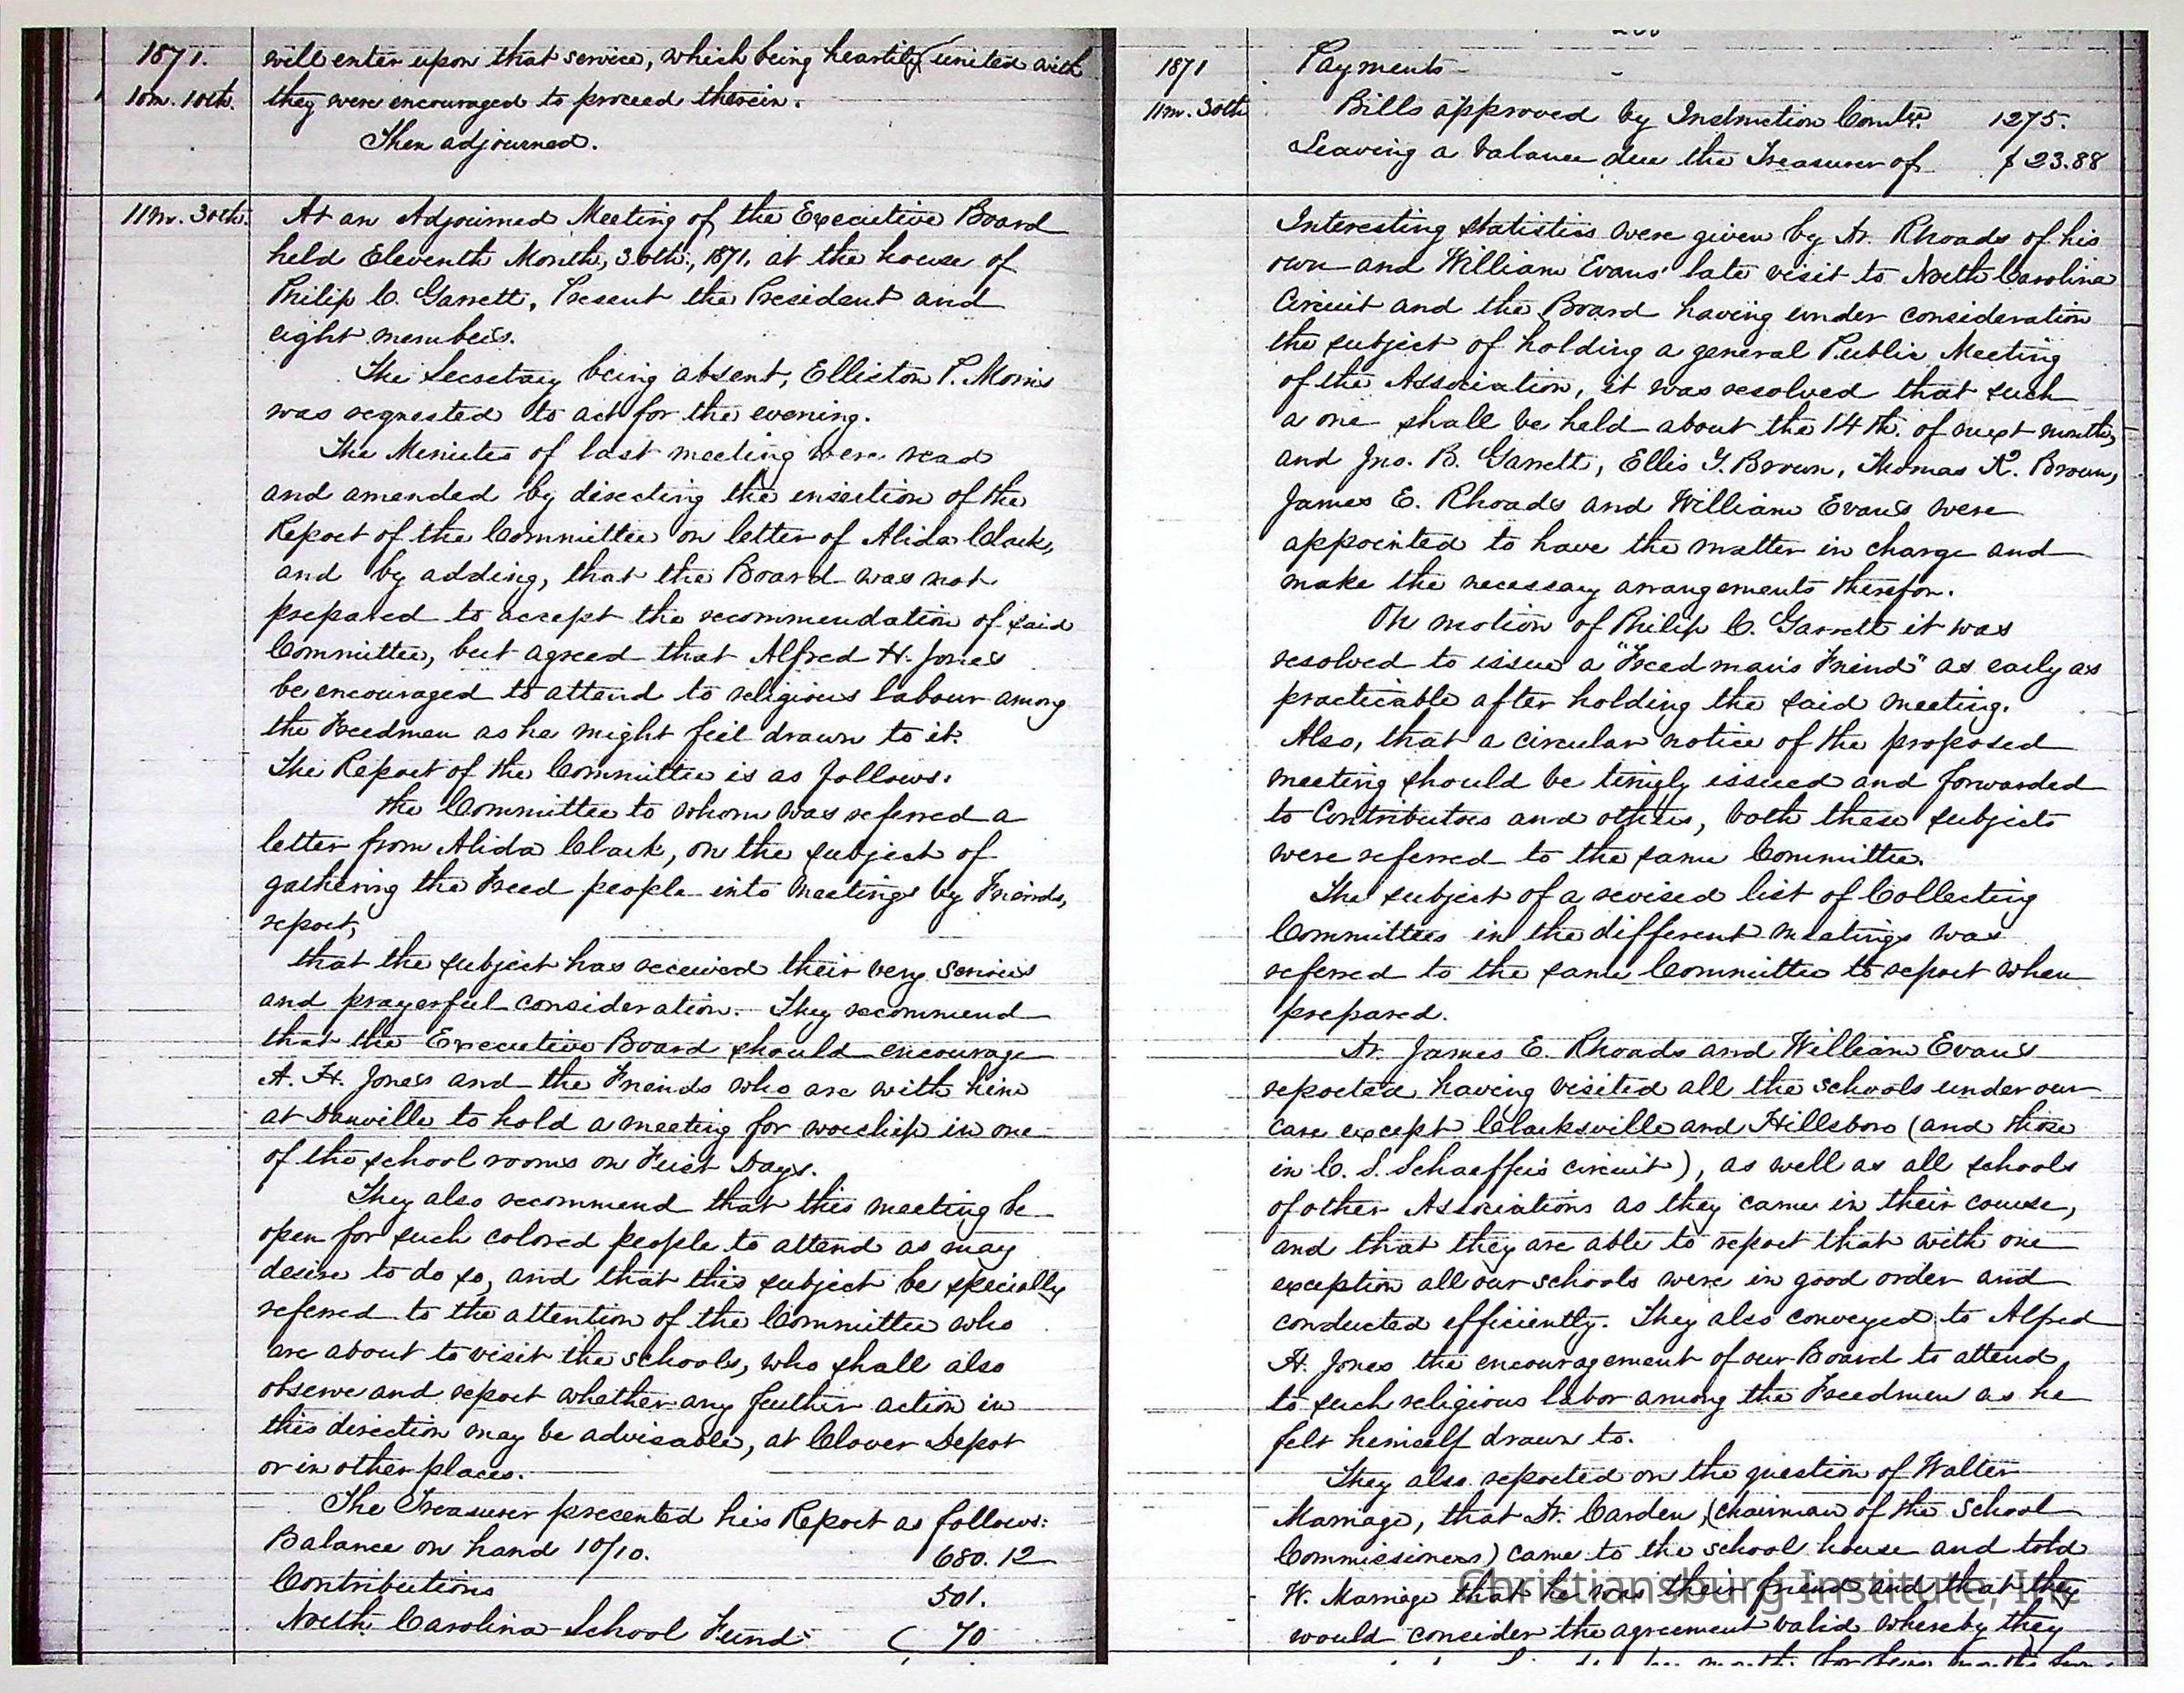 1871.
10m. 10th.
will enter upon that service, which being heartily united with
they were encouraged to proceed therein.
Then adjourned.
11m. 30th.
At an Adjourned Meeting of the Executive Board
held Eleventh Month, 30th, 1871, at the house of
Philip C. Garrett, Present the President and
eight members.
The Secretary being absent, Elliston P. Morris
was requested to act for the evening.
The Minutes of last meeting were read
and amended by directing the insertion of the
Report of the Committee on letter of Alida Clark,
and by adding, that the Board was not
prepared to accept the recommendation of said
Committee, but agreed that Alfred H. Jones
be encouraged to attend to religious labour among
the Freedmen as he might feel drawn to it.
The Report of the Committee is as follows.
the Committee to whom was referred a
letter from Alida Clark, on the subject of
gathering the Freed people into Meetings by Friends,
report,
that the subject has received their very serious
and prayerful consideration. They recommend
that the Executive Board should encourage
A. H. Jones and the Friends who are with him
at Danville to hold a meeting for worship in one
of the school rooms on First Days.
They also recommend that this meeting be
open for such colored people to attend as may
desire to do so, and that this subject be specially
referred to the attention of the Committee who
are about to visit the schools, who shall also
observe and report whether any further action in
this direction may be advisable, at Clover Depot
or in other places.
The Treasurer presented his Report as follows:
Balance on hand 10/10. 680.12
Contributions 501.
North Carolina School Fund 70
1871
11m. 30th
Payments
Bills approved by Instruction Comtee. 1275.
Leaving a balance due the Treasurer of $23.88
Interesting statistics were given by Dr. Rhoads of his
own and William Evans' late visit to North Carolina
Circuit and the Board having under consideration
the subject of holding a general Public Meeting
of the Association, it was resolved that such
a one shall be held about the 14th. of next month,
and Jno. B. Garrett, Ellis G. Brown, Thomas K. Brown,
James E. Rhoads and William Evans were
appointed to have the matter in charge and
make the necessary arrangements therefor.
On motion of Philip C. Garrett it was
resolved to issue a "Freedman's Friend" as early as
practicable after holding the said meeting.
Also, that a circular notice of the proposed
meeting should be timely issued and forwarded
to Contributors and others, both these subjects
were referred to the same Committee.
The subject of a revised list of Collecting
Committees in the different meetings was
referred to the same Committee to report when
prepared.
Dr. James E. Rhoads and William Evans
reported having visited all the schools under our
care except Clarksville and Hillsboro (and those
in C. S. Schaeffer's circuit), as well as all schools
of other Associations as they came in their course,
and that they are able to report that with one
exception all our schools were in good order and
conducted efficiently. They also conveyed to Alfred
H. Jones the encouragement of our Board to attend
to such religious labor among the Freedmen as he
felt himself drawn to.
They also reported on the question of Walter
Marriage, that Dr. Carden, (chairman of the School
Commissioners) came to the school house and told
W. Marriage that he was their friend and that they
would consider the agreement valid whereby they
Christiansburg Institute, Inc